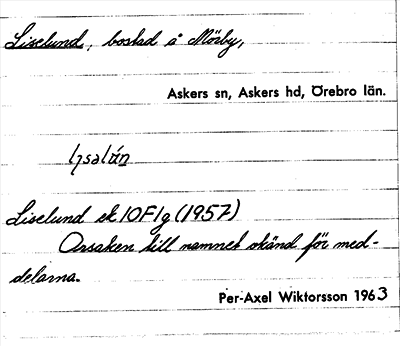 Liselund, bostad å Mörby,
Askers sn, Askers hd, Örebro län.
Liselund ek 10F1g (1957)
Orsaken till namnet okänd för med-
delarna.
Per-Axel Wiktorsson 1963